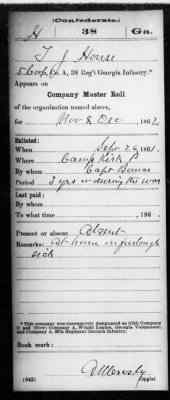 (Confederate.)
H 38 Ga.
T J House
5 Corp, Co. A, 38 Reg't Georgia Infantry.*
Appears on
Company Muster Roll
of the organization named above,
for Nov & Dec, 1862.
Enlisted:
When Sept 26, 1861.
Where Camp Kirk
By whom Capt
Period 3 yrs or during the war
Last paid:
By whom
To what time , 186 .
Present or absent Absent
Remarks: At home on furlough
sick
*This company was successively designated as (Old) Company
C and (New) Company A, Wright Legion, Georgia Volunteers;
and Company A, 38th Regiment Georgia Infantry.
Book mark:
(642) Copyist.